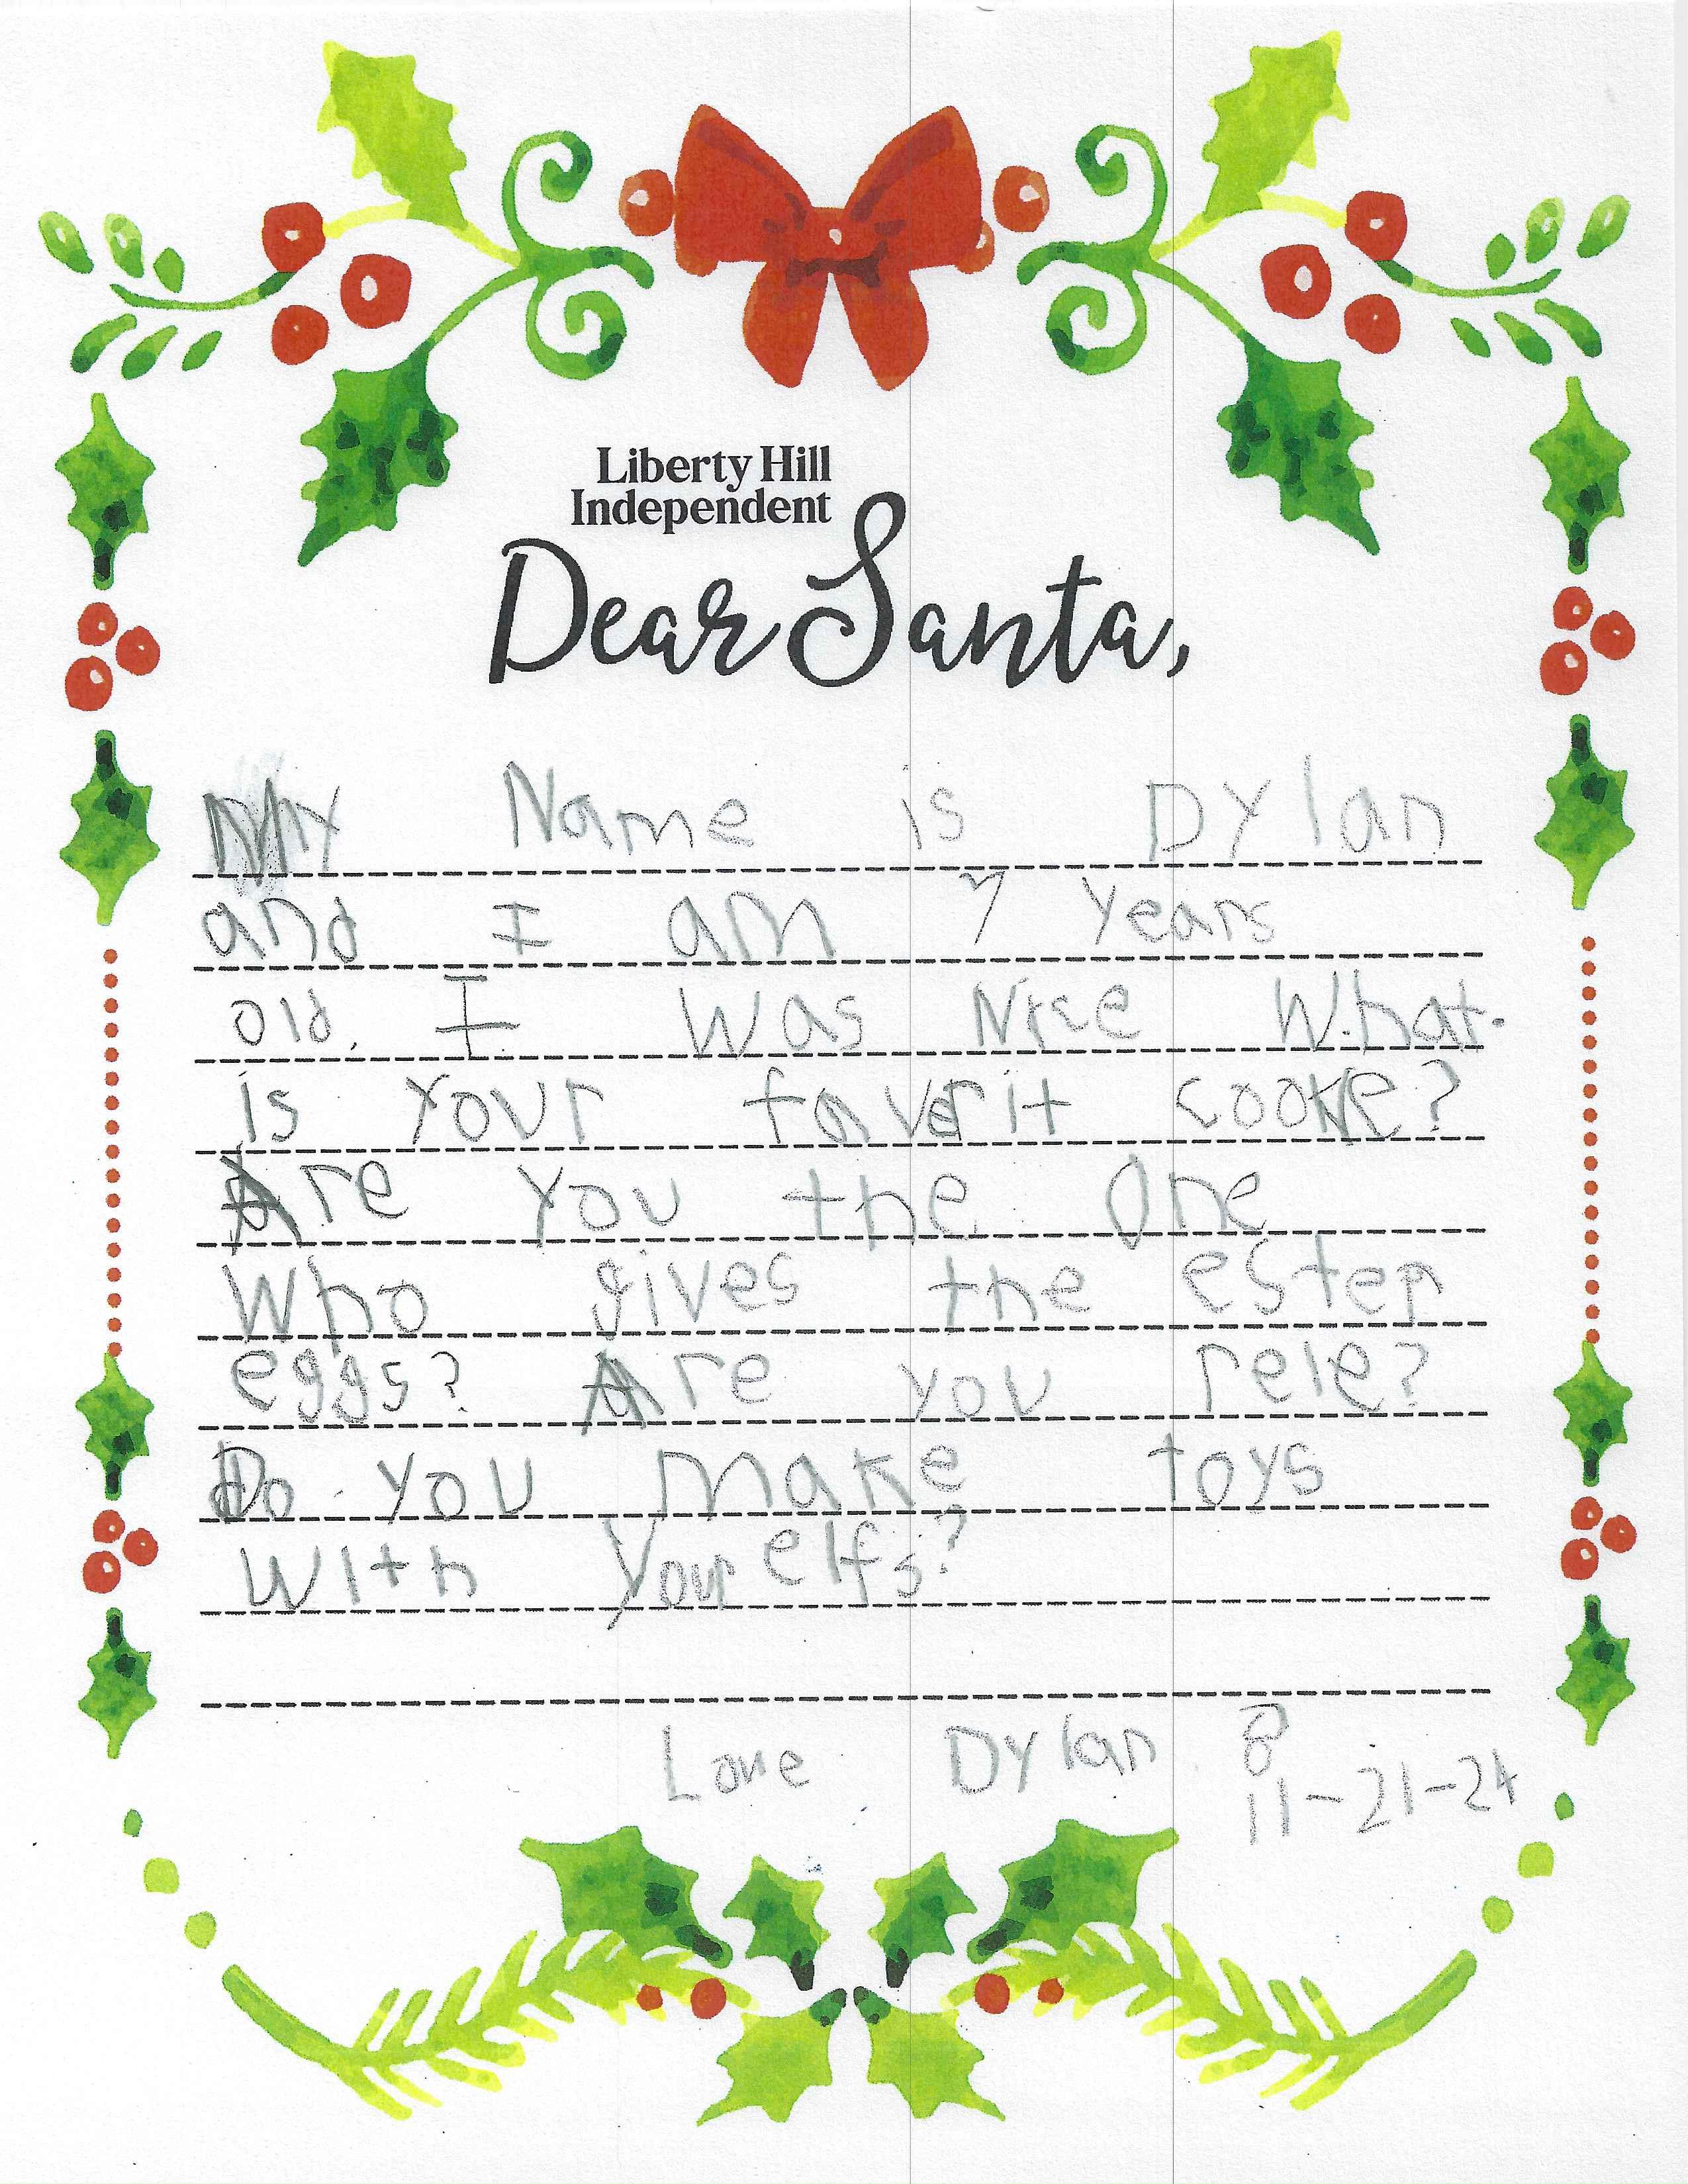 Liberty Hill
Independent
Dear Santa,
My Name is Dylan
and I am 7 years
old. I was Nice What.
is your favorit cooke?
Are you the One
Who gives the ester
eggs? Are you rele?
Do you make toys
With Your elfs?
Love Dylan B
11-21-24